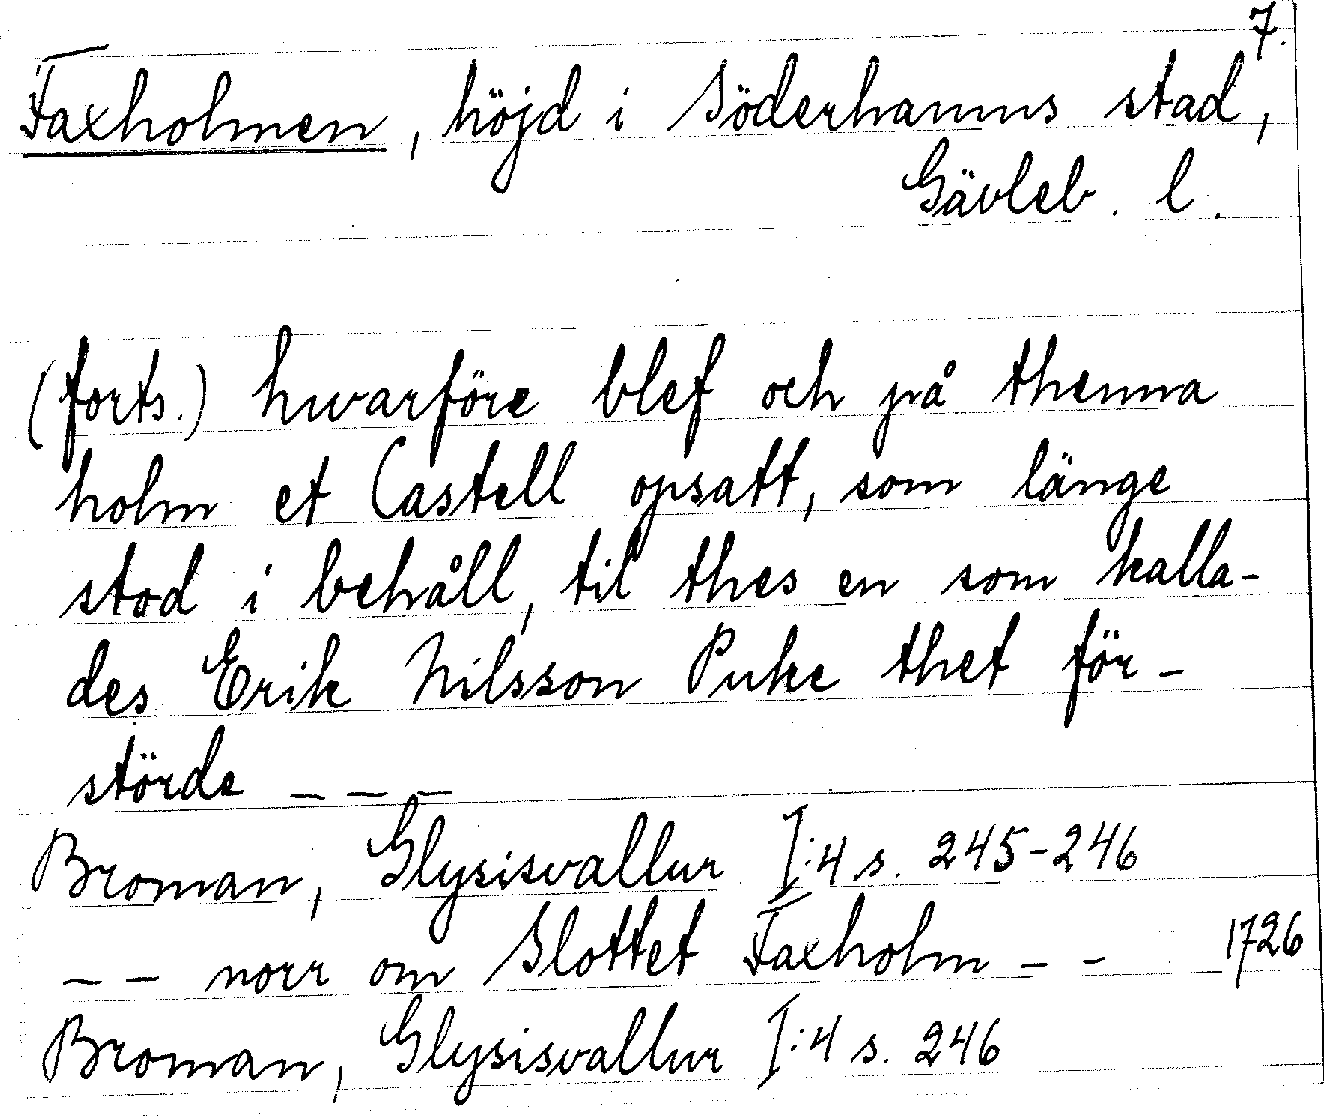 7.
Faxholmen, höjd i Söderhamns stad,
Gävleb. l.
(forts.) hwarföre blef och på thenna
holm et Castell opsatt, som länge
stod i behåll, til thes en som kalla-
des Erik Nilsson Puke thet för-
störde ---
Broman, Glysisvallur I:4 s. 245-246
-- norr om Slottet Faxholm -- 1726
Broman, Glysisvallur I:4 s. 246